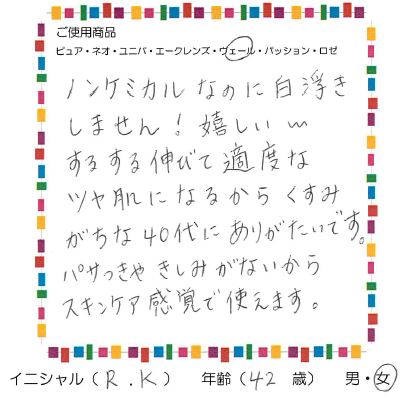 ご使用商品
ピュア・ネオ・ユニバ・エークレンズ・ヴェール・パッション・ロゼ
ノンケミカルなのに白浮き
しません!嬉しいm
するする伸びて適度な
ツヤ肌になるからくすみ
がちな40代にありがたいです。
パサつきやきしみがないから
スキンケア感覚で使えます。
イニシャル(R.K) 年齢(42 歳) 男・女